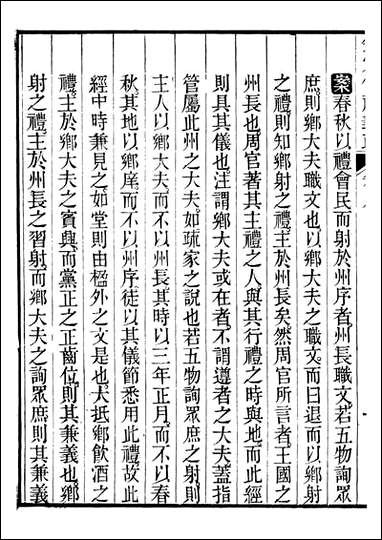 案春秋以禮會民而射於州序者州長職文若五物詢眾
庶則鄉大夫職文也以鄉大夫之職文而曰退而以鄉射
之禮則知鄉射之禮主於州長矣然周官所言者王國之
州長也周官著其主禮之人與其行禮之時與地而此經
則具其儀也注謂鄉大夫或在者不謂遵者之大夫蓋指
管屬此州之大夫如疏家之說也若五物詢眾庶之射則
主人以鄉大夫而不以州長其時以三年正月而不以春
秋其地以鄉庠而不以州序徒以其儀節悉用此禮故此
經中時兼見之如堂則由楹外之文是也大抵鄉飲酒之
禮主於鄉大夫之賓興而黨正之正齒位則其兼義也鄉
射之禮主於州長之習射而鄉大夫之詢眾庶則其兼義